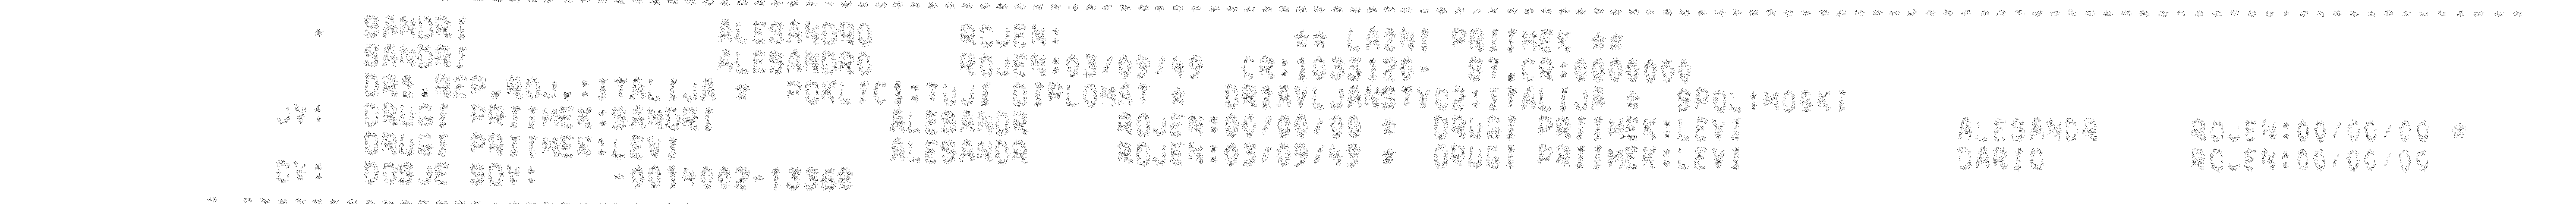 * SANDRI ALESANDRO ROJEN: ** LAZNI PRIIMEK **
SANDRI ALESANDRO ROJEN:03/09/49 CR:1033120- ST.CR:0000000
DRZ.REP.ROJ.:ITALIJA * POKLICI:TUJI DIPLOMAT * DRZAVLJANSTVO2:ITALIJA * SPOL:MOSKI
JV: DRUGI PRIIMEK:SANDRI ALESANDR ROJEN:00/00/00 * DRUGI PRIIMEK:LEVI ALESANDR ROJEN:00/00/00 *
DRUGI PRIIMEK:LEVI ALESANDR ROJEN:03/09/49 * DRUGI PRIIMEK:LEVI DARIO ROJEN:00/00/00
CV: DOSJE SDV: -0014002-13368